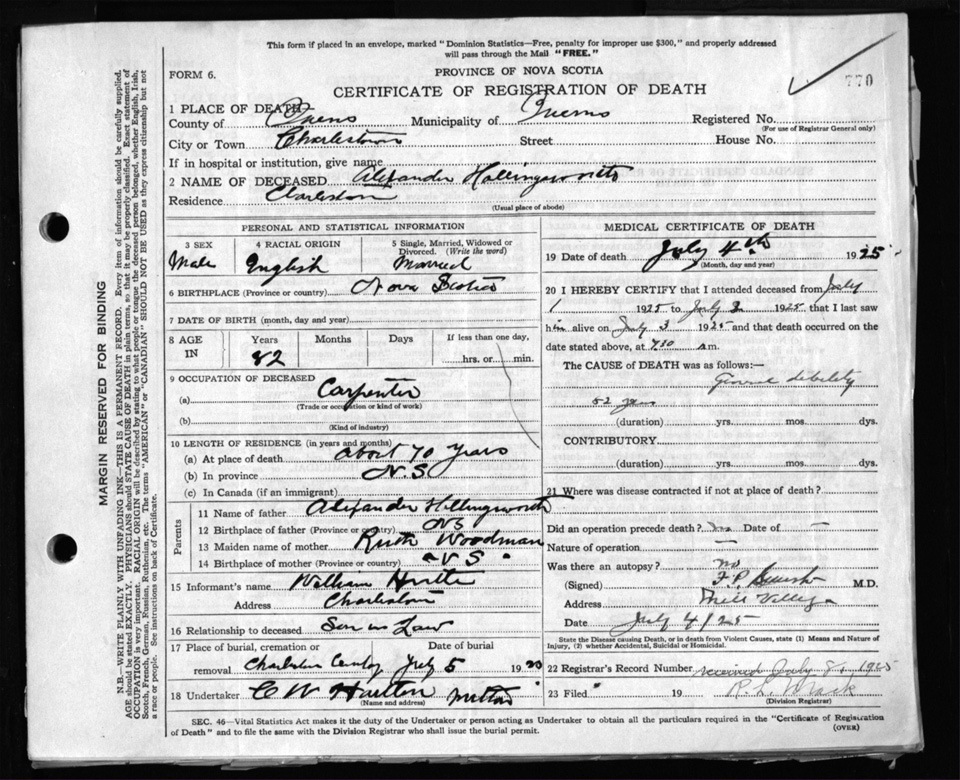 This form if placed in an envelope, marked "Dominion Statistics—Free, penalty for improper use $300," and properly addressed
will pass through the Mail "FREE."
FORM 6.
PROVINCE OF NOVA SCOTIA
770
CERTIFICATE OF REGISTRATION OF DEATH
1 PLACE OF DEATH
County of Queens Municipality of Queens Registered No.
(For use of Registrar General only)
City or Town Charleston Street House No.
If in hospital or institution, give name
2 NAME OF DECEASED Alexander Hollingsworth
Residence Charleston
(Usual place of abode)
PERSONAL AND STATISTICAL INFORMATION
3 SEX 4 RACIAL ORIGIN 5 Single, Married, Widowed or Divorced. (Write the word)
Male English Married
6 BIRTHPLACE (Province or country) Nova Scotia
7 DATE OF BIRTH (month, day and year)
8 AGE IN Years Months Days If less than one day,
82 hrs. or min.
9 OCCUPATION OF DECEASED
(a) Carpenter
(Trade or occupation or kind of work)
(b)
(Kind of industry)
10 LENGTH OF RESIDENCE (in years and months)
(a) At place of death about 70 years
(b) In province N.S
(c) In Canada (if an immigrant)
Parents
11 Name of father Alexander Hollingsworth
12 Birthplace of father (Province or country) NS
13 Maiden name of mother Ruth Woodman
14 Birthplace of mother (Province or country) " N S "
15 Informant's name William
Address Charleston
16 Relationship to deceased Son in Law
17 Place of burial, cremation or removal Date of burial
Charleston July 5 19
18 Undertaker C W
(Name and address)
MEDICAL CERTIFICATE OF DEATH
19 Date of death July 4th 1925
(Month, day and year)
20 I HEREBY CERTIFY that I attended deceased from July
1 1925 to July 3 1925 that I last saw
him alive on July 3 1925 and that death occurred on the
date stated above, at 7.30 a m.
The CAUSE of DEATH was as follows:—
General debility
82 years
(duration) yrs. mos. dys.
CONTRIBUTORY
(duration) yrs. mos. dys.
21 Where was disease contracted if not at place of death?
Did an operation precede death? Date of —
Nature of operation —
Was there an autopsy? no
(Signed) F P M.D.
Address Mill Village
Date July 4/25
State the Disease causing Death, or in death from Violent Causes, state (1) Means and Nature of
Injury, (2) whether Accidental, Suicidal or Homicidal.
22 Registrar's Record Number received July 8, 1925
23 Filed 19 R. L.
(Division Registrar)
SEC. 46—Vital Statistics Act makes it the duty of the Undertaker or person acting as Undertaker to obtain all the particulars required in the "Certificate of Registration
of Death" and to file the same with the Division Registrar who shall issue the burial permit.
(OVER)
MARGIN RESERVED FOR BINDING
N.B.—WRITE PLAINLY WITH UNFADING INK—THIS IS A PERMANENT RECORD. Every item of information should be carefully supplied.
AGE should be stated EXACTLY. PHYSICIANS should STATE CAUSE OF DEATH in plain terms, so that it may be properly classified. Exact statement of
OCCUPATION is very important. RACIAL ORIGIN will be described by stating to what people or tongue the deceased person belonged, whether English, Irish,
Scotch, French, German, Russian, Ruthenian, etc. The terms "AMERICAN" or "CANADIAN" SHOULD NOT BE USED as they express citizenship but not
a race or people. See instructions on back of Certificate.